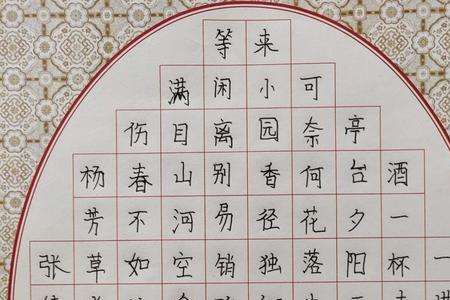 一
酒一杯
亭台夕阳
可奈何花落
来小园香径独
等闲离别易销
满目山河空
伤春不如
杨芳草
张